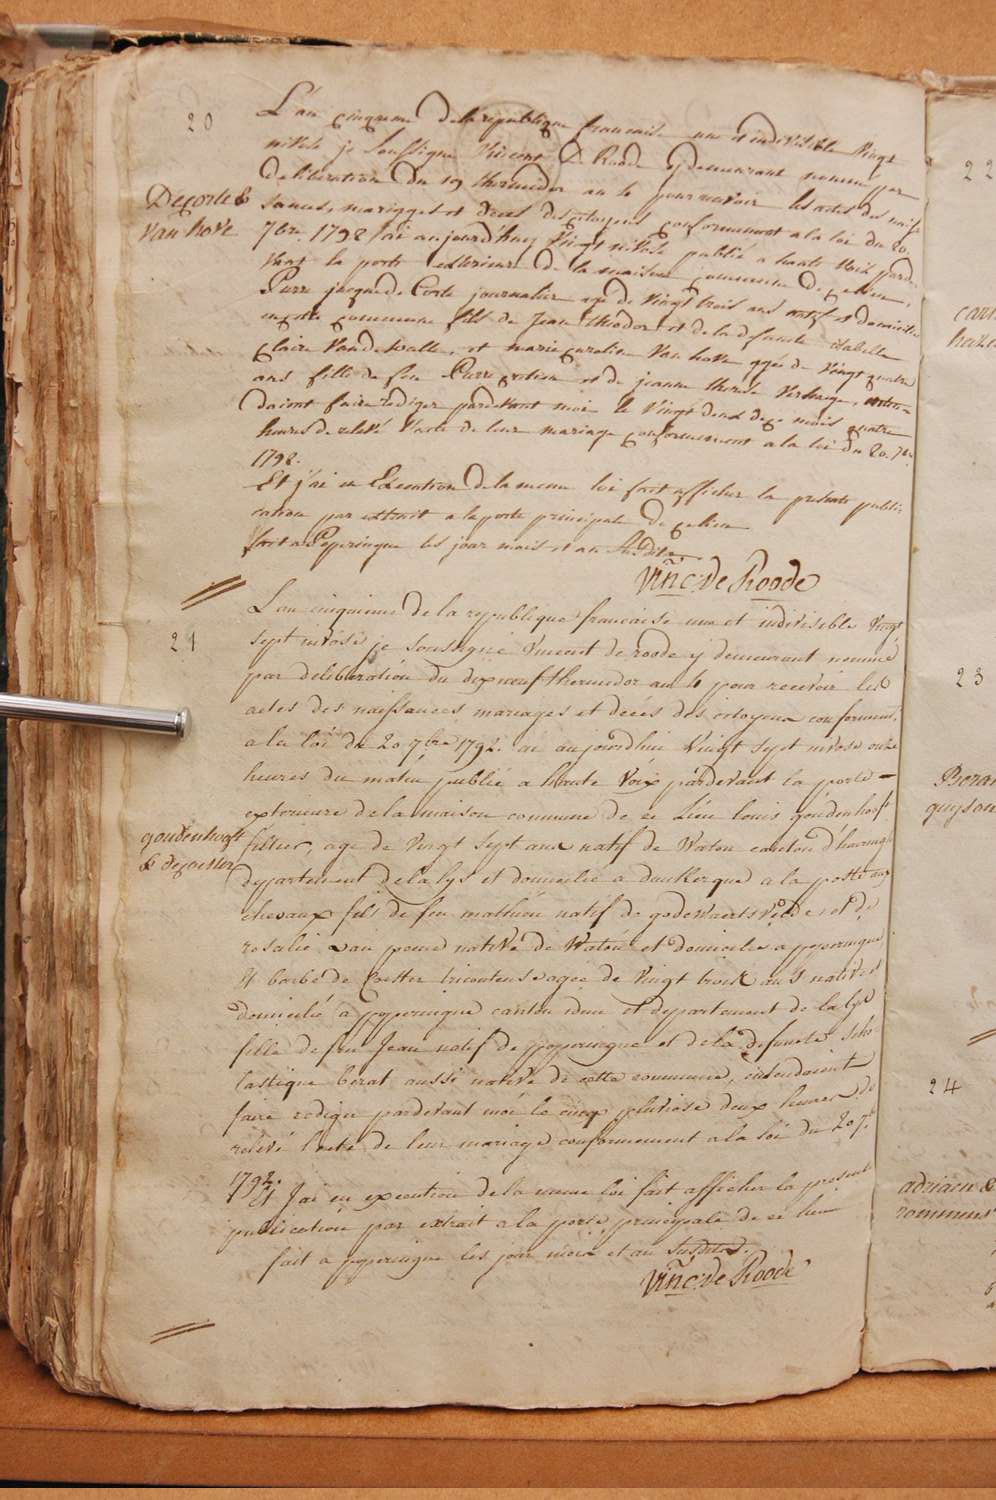 20
L'án cinquieme de la republique francaise une et indivisible Vingt
nivose je soussigne Vincent de Roode y demeurant nommé par
deliberation du 19 thermidor an 4 pour recevoir les actes des nais-
sances, mariages et deces des citoyens conformement a la loi du 20.
Decorte &
van hove
7bre 1792 j'ai aujourd'huy Vingt nivose publié a haute Voix parde-
vant la porte exterieure de la maison commune de ce lieu,
Pierre jacque de Corte journalier age de Vingt trois ans natif et domicilie
en cette commune fils de Jean theodor et de la defuncte isabelle
claire Vandewalle, et marie caroline Van hove agée de Vingt quatre
ans fille de feu Pierre et de jeanne therese Verhaege, enten-
daient faire rediger pardevant moi le Vingt deux de ce mois quatre
heures de relevé l'acte de leur mariage conformement a la loi du 20. 7bre
1792.
Et j'ai en Execution de la meme loi fait afficher la presente publi-
cation par extrait a la porte principale de ce lieu
fait a Poperingue les jour mois et an susdits.
Vinc: de Roode
21
L'an cinquieme de la republique francaise une et indivisible Vingt
sept nivose je soussigné Vincent de roode y demeurant nommé
par deliberation du dix neuf thermidor an 4 pour recevoir les
actes des naissances mariages et decés des citoyens conformem.
a la loi du 20 7bre 1792. ai aujourdhui Vingt sept nivose onze
heures du matin publié a haute Voix pardevant la porte
exterieure de la maison commune de ce Lieu louis goudenhooft
goudenhooft
& decoester
age de Vingt sept ans natif de Watou canton d'haringhe
departement de la lys et domicilié a dunkerque a la poste aux
chevaux fils de feu mathieu natif de godewaertsvelde et de
rosalie native de Watou et domicilie a poperingue
Et barbe de Coester tricoteuse agée de Vingt trois ans native et
domicilié a poperingue canton idem et departement de la lys
fille de feu Jean natif de poperingue et de la defuncte scho
lastique berat aussi native de cette commune, entendaient
faire rediger pardevant moi le cinq pluviose deux heures de
relevé l'acte de leur mariage conformement a la loi du 20 7bre
1792.
Et J'ai en execution de la meme loi fait afficher la presente
publication par extrait a la porte principale de ce lieu
fait a poperingue les jour mois et an susdits.
Vinc: de Roode
22
23
24
adriaen &